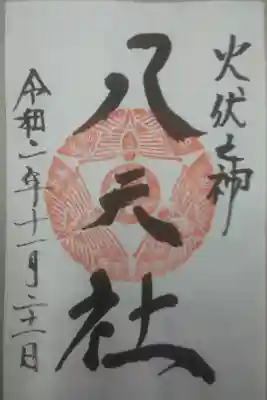 火伏之神
八天社
令和二年十一月二十二日